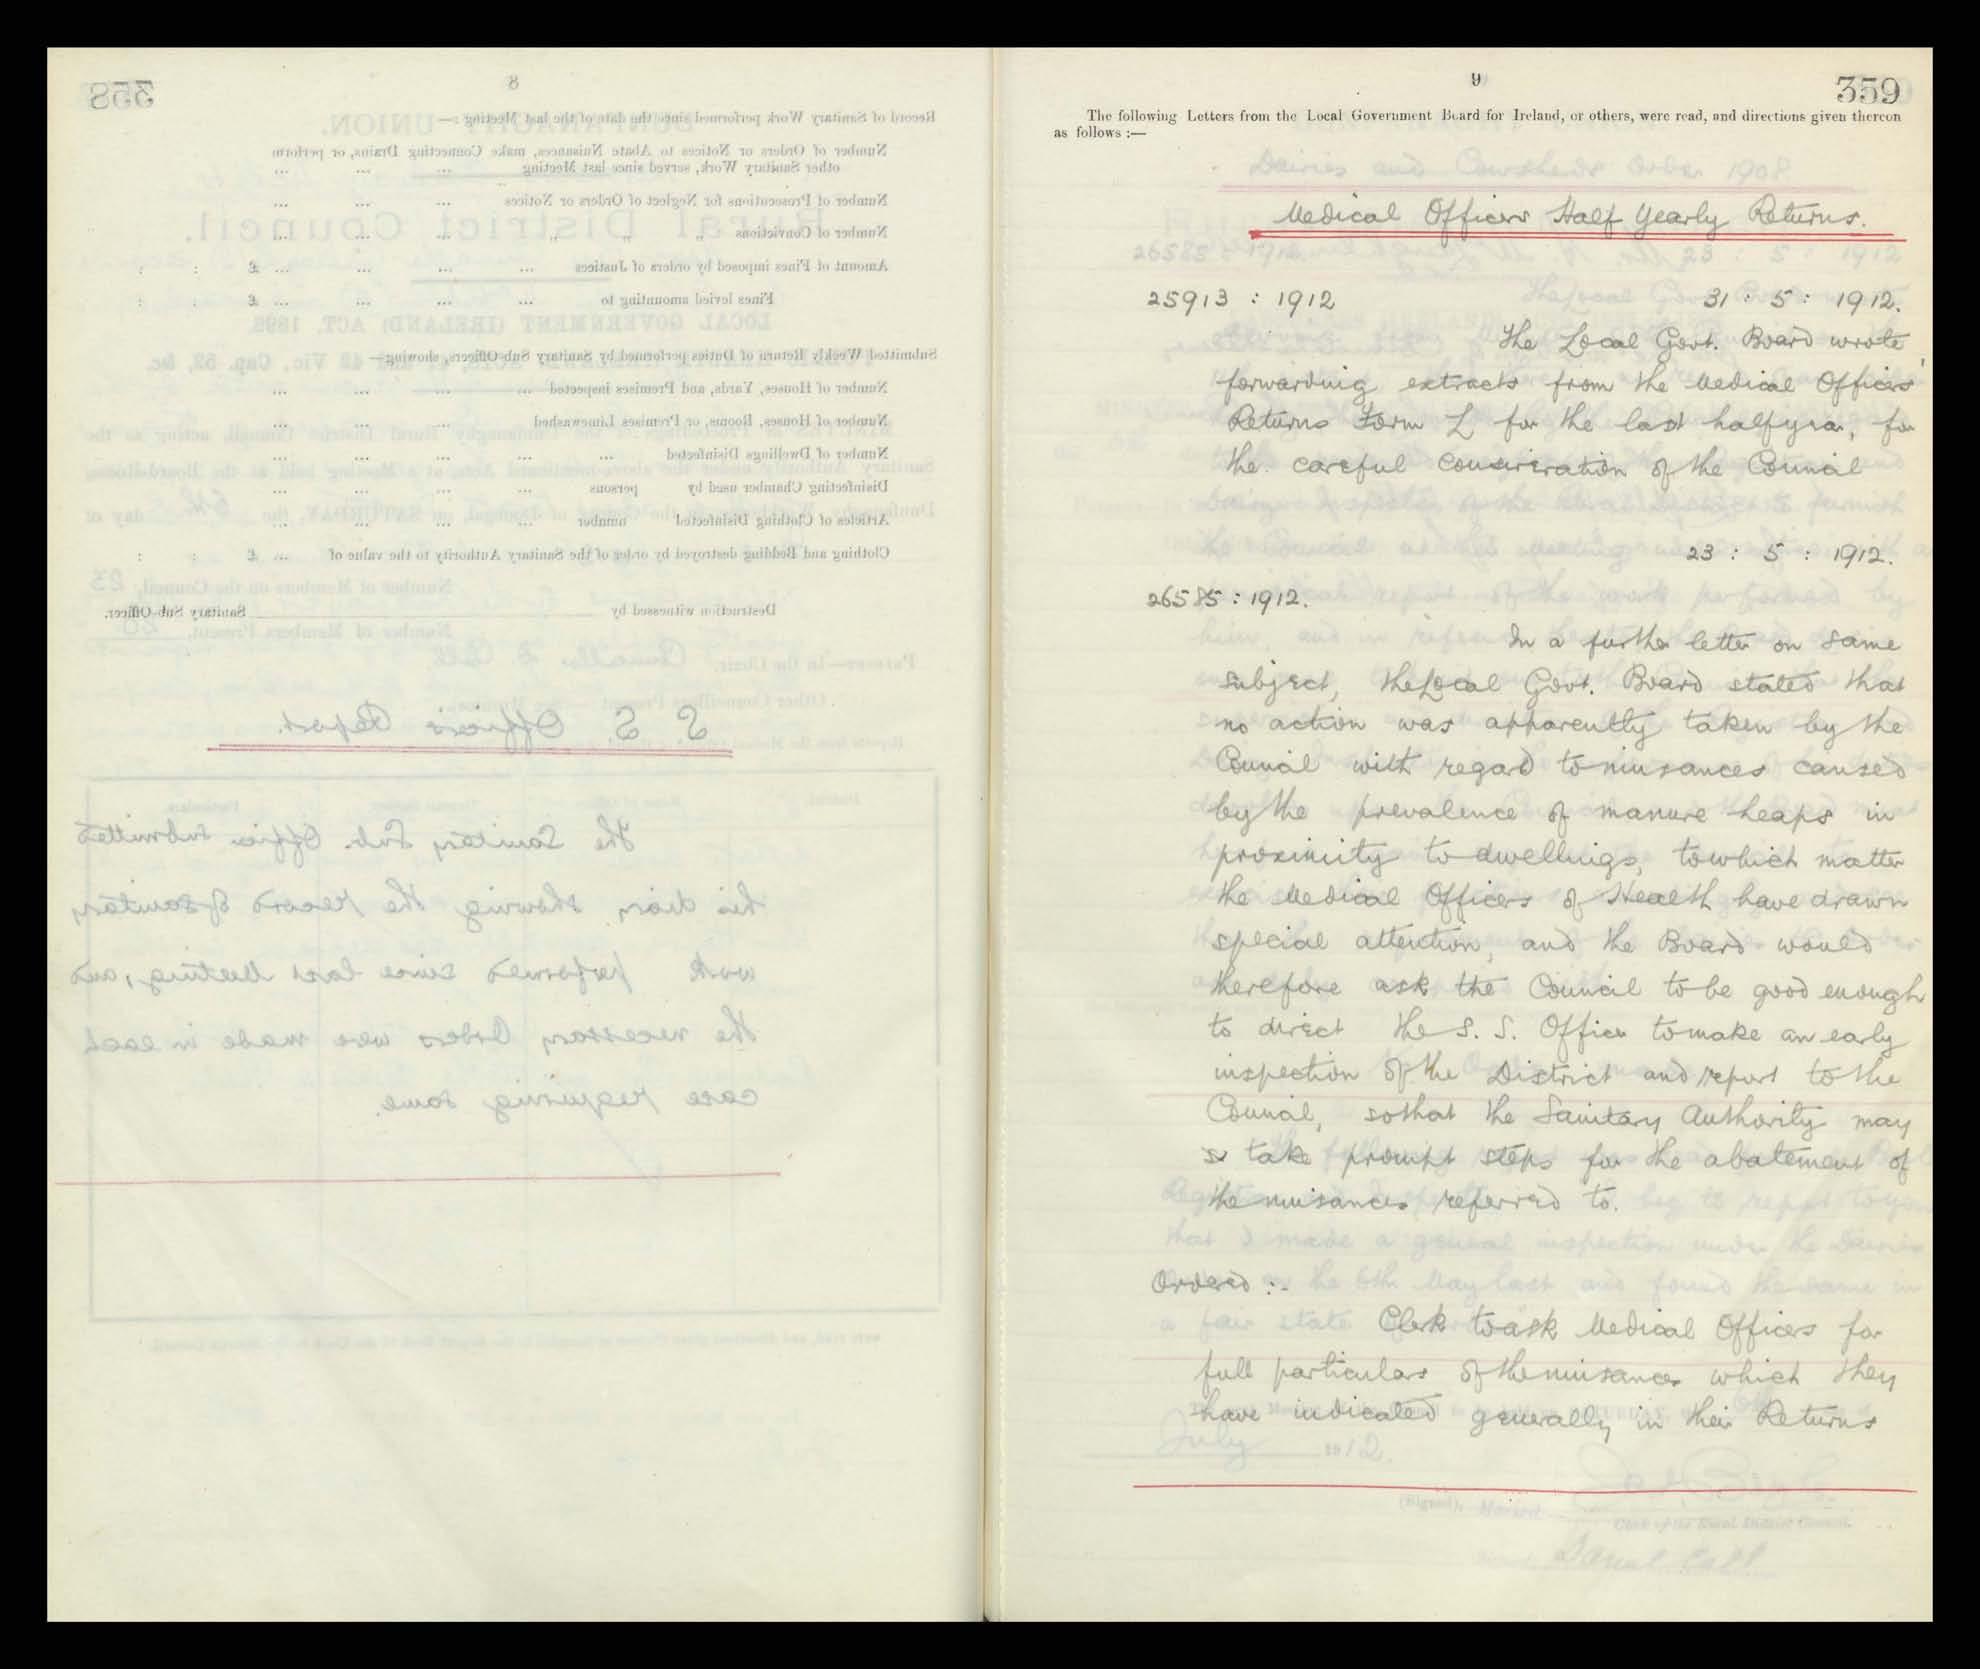 8
358
Record of Sanitary Work performed since the date of the last Meeting :—
Number of Orders or Notices to Abate Nuisances, make Connecting Drains, or perform
other Sanitary Work, served since last Meeting ... ... ...
Number of Prosecutions for Neglect of Orders or Notices ... ... ...
Number of Convictions „ „ „ ... ... ...
Amount of Fines imposed by orders of Justices ... ... ... ... £ : :
Fines levied amounting to ... ... ... ... £ : :
Submitted Weekly Return of Duties performed by Sanitary Sub-Officers, showing—
Number of Houses, Yards, and Premises inspected ... ... ... ...
Number of Houses, Rooms, or Premises Limewashed ... ... ...
Number of Dwellings Disinfected ... ... ... ... ...
Disinfecting Chamber used by persons ... ... ... ...
Articles of Clothing Disinfected number ... ... ... ...
Clothing and Bedding destroyed by order of the Sanitary Authority to the value of ... £ : :
Destruction witnessed by Sanitary Sub-Officer.
S. S. Officer's Report.
The Sanitary Sub. Officer submitted
his diary showing the record of sanitary
work performed since last Meeting, and
the necessary Orders were made in each
case requiring same.
9
359
The following Letters from the Local Government Board for Ireland, or others, were read, and directions given thereon
as follows :—
Medical Officers Half Yearly Returns.
25913 : 1912 31 : 5 : 1912.
The Local Govt. Board wrote
forwarding extracts from the Medical Officers'
Returns Form L for the last halfyear, for
the careful consideration of the Council
23 : 5 : 1912.
26585 : 1912.
In a further letter on same
subject, the Local Govt. Board stated that
no action was apparently taken by the
Council with regard to nuisances caused
by the prevalence of manure heaps in
proximity to dwellings, to which matter
the Medical Officers of Health have drawn
special attention, and the Board would
therefore ask the Council to be good enough
to direct the S. S. Officer to make an early
inspection of the District and report to the
Council, so that the Sanitary Authority may
take prompt steps for the abatement of
the nuisances referred to.
Ordered :-
Clerk to ask Medical Officers for
full particulars of the nuisances which they
have indicated generally in their Returns